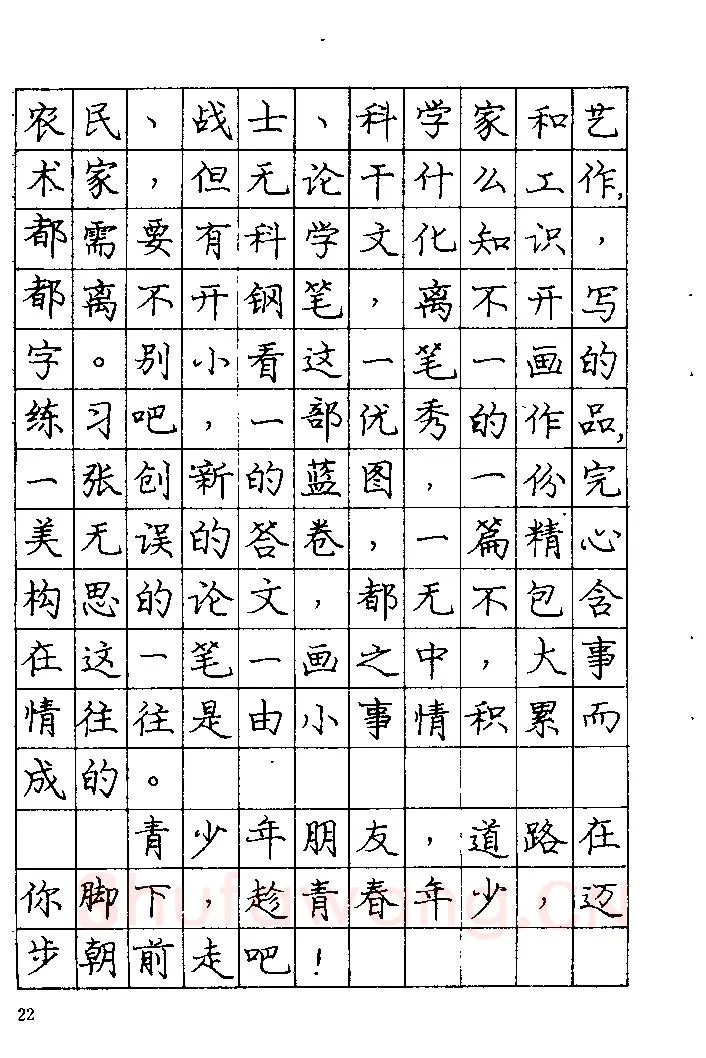 农民、战士、科学家和艺
术家，但无论干什么工作，
都需要有科学文化知识，
都离不开钢笔，离不开写
字。别小看这一笔一画的
练习吧，一部优秀的作品，
一张创新的蓝图，一份完
美无误的答卷，一篇精心
构思的论文，都无不包含
在这一笔一画之中，大事
情往往是由小事情积累而
成的。
青少年朋友，道路在
你脚下，趁青春年少，迈
步朝前走吧！
Shufawang.CN
22